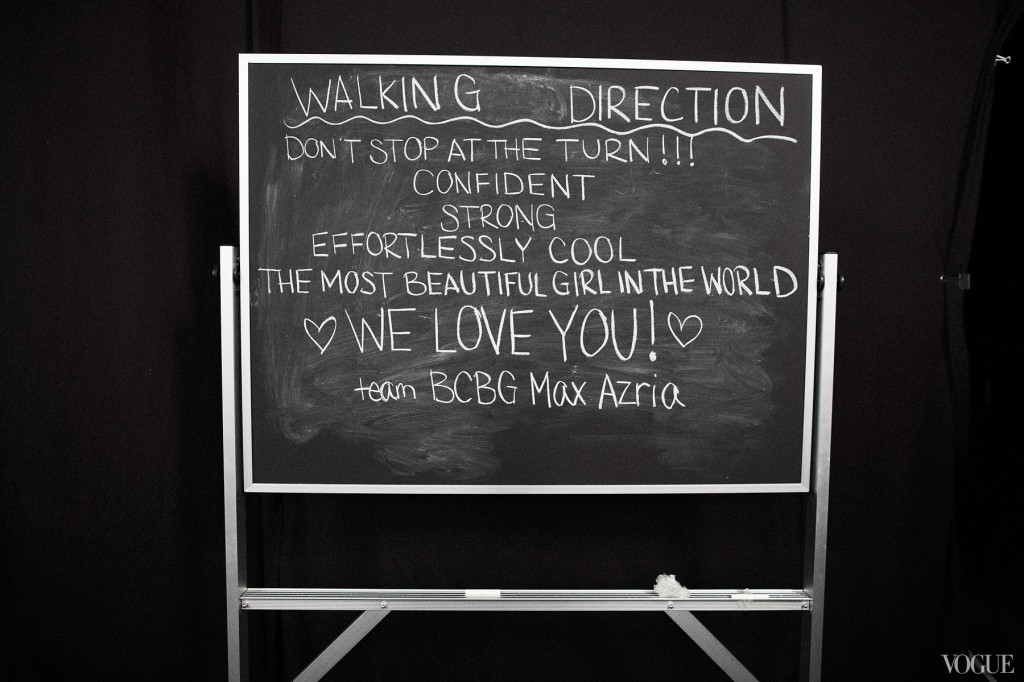 WALKING DIRECTION
DON'T STOP AT THE TURN!!!
CONFIDENT
STRONG
EFFORTLESSLY COOL
THE MOST BEAUTIFUL GIRL IN THE WORLD
♡ WE LOVE YOU! ♡
team BCBG Max Azria
VOGUE